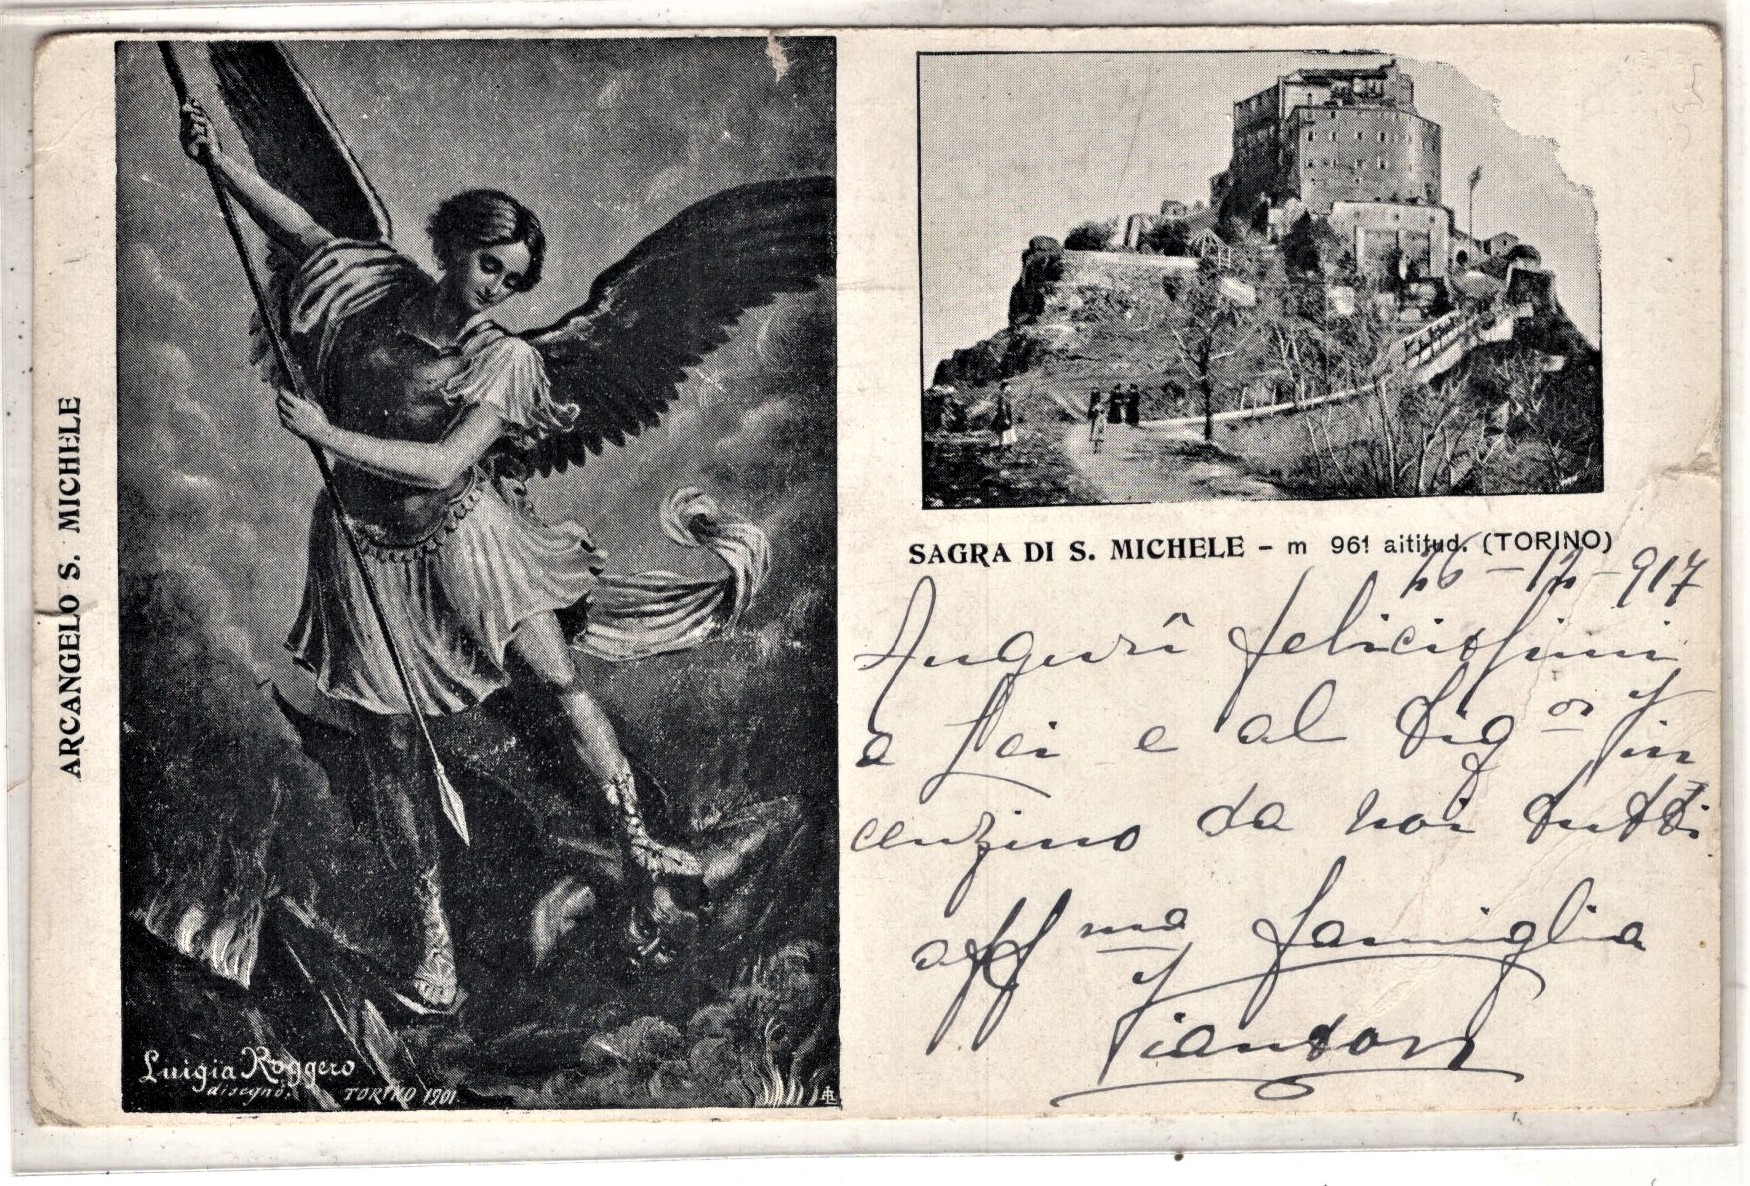 ARCANGELO S. MICHELE
Luigia Roggero
disegnò. TORINO 1901
SAGRA DI S. MICHELE - m 961 aititud. (TORINO)
26-12-917
Auguri felicissimi
a Lei e al Sig or Vin
cenzino da noi tutti
aff ma famiglia